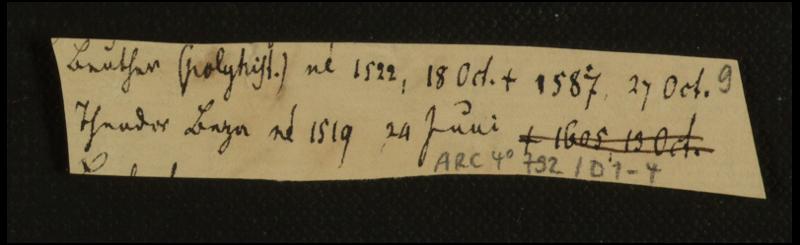 Beuther (polyhist.) né 1522, 18 Oct. + 1587, 27 Oct. 9
Theodor Beza né 1519 24 Juni + 1605, 13 Oct.
ARC 4° 792 / D 1-4